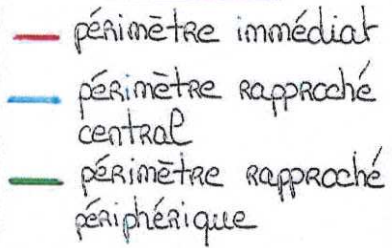 périmètre immédiat
périmètre rapproché
central
périmètre rapproché
périphérique